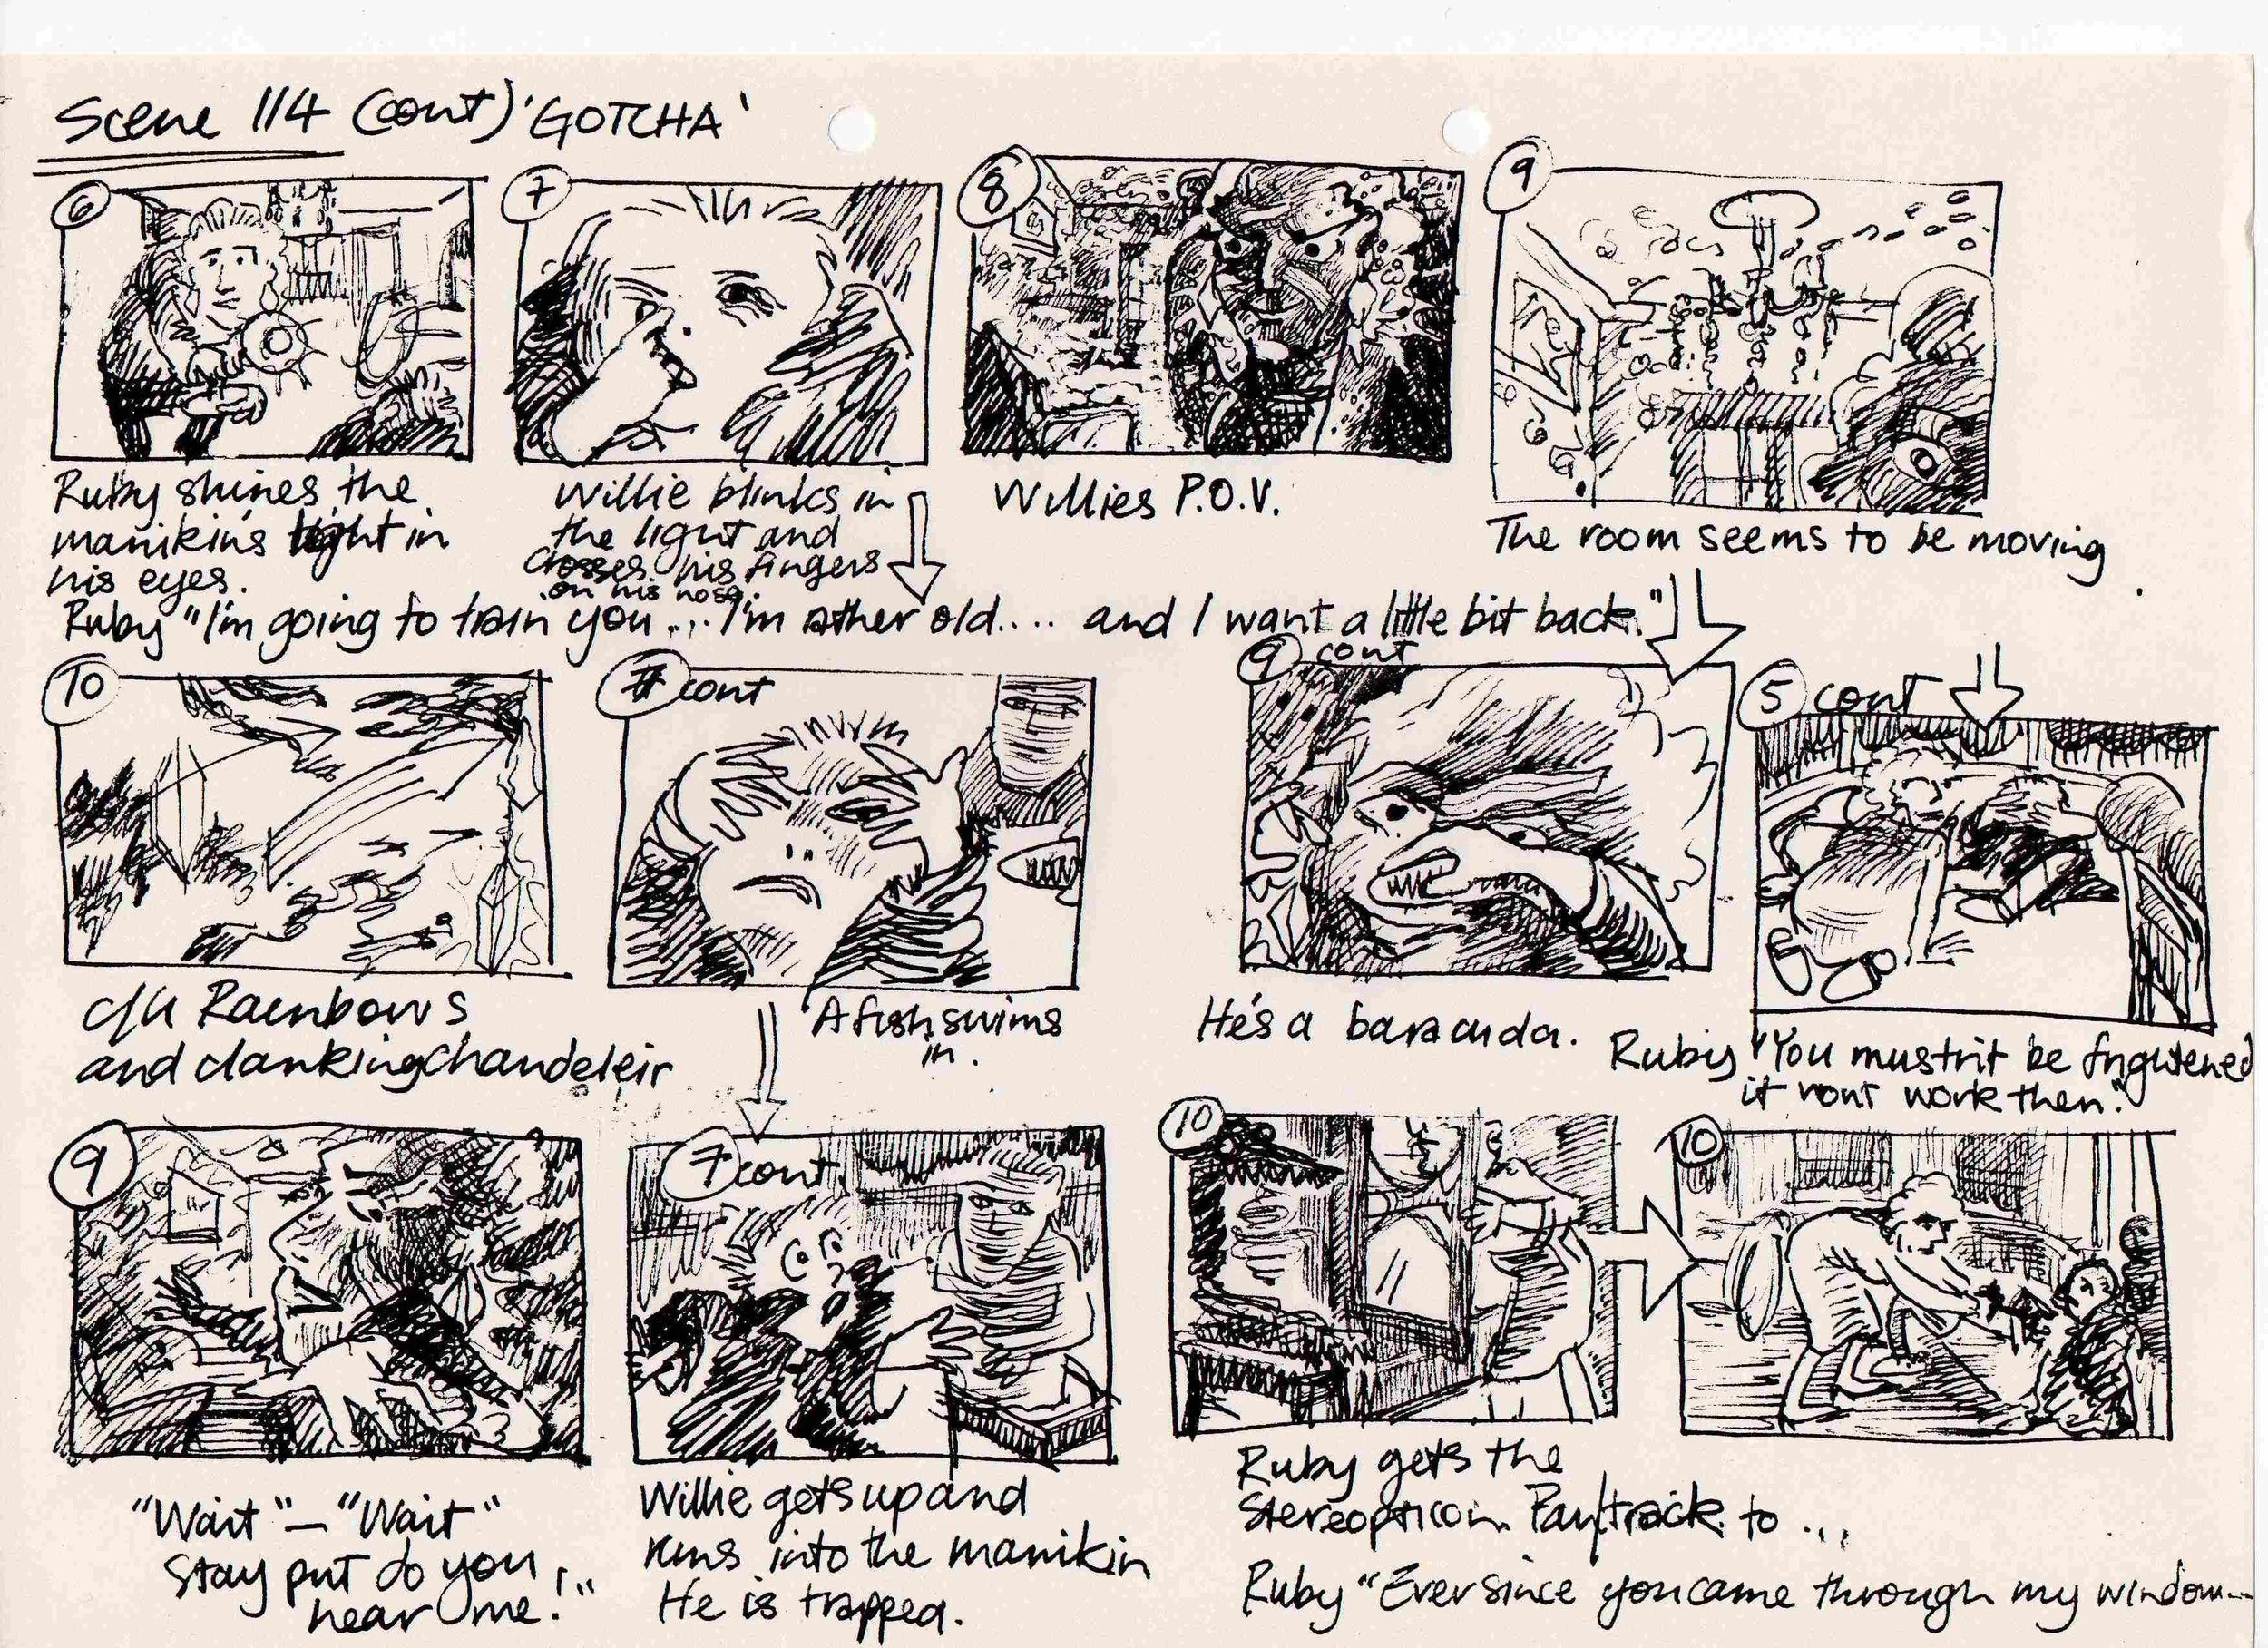 Scene 114 (cont) 'GOTCHA'
6
7
8
9
Ruby shines the
manikin's light in
his eyes.
Willie blinks in
the light and
crosses his fingers
on his nose.
Willies P.O.V.
The room seems to be moving
Ruby "I'm going to train you... I'm rather old.... and I want a little bit back."
10
7 cont
9 cont
5 cont
c/u Raenbows
and clankingchandeleir
A fish swims
in.
He's a baracuda.
Ruby "You mustn't be frightened
it won't work then."
9
7 cont.
10
10
"Wait" – "Wait"
Stay put do you
hear me!"
Willie gets up and
runs into the manikin
He is trapped.
Ruby gets the
Stereopticon. Pan/track to ...
Ruby "Ever since you came through my window....